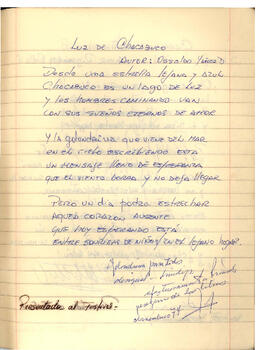 LUZ DE CHACABUCO
AUTOR: OSVALDO YAÑEZ D
DESDE UNA ESTRELLA LEJANA Y AZUL
CHACABUCO ES UN LAGO DE LUZ
Y LOS HOMBRES CAMINANDO VAN
CON SUS SUEÑOS ETERNOS DE AMOR
Y LA GOLONDRINA QUE VIENE DEL MAR
EN EL CIELO ESCRIBIENDO ESTA
UN MENSAJE LLENO DE ESPERANZA
QUE EL VIENTO BORRA Y NO DEJA LLEGAR
PERO UN DIA PODRA ESTRECHAR
AQUEL CORAZON AUSENTE
QUE HOY ESPERANDO ESTA
ENTRE SONRISAS DE NIÑOS EN EL LEJANO HOGAR.
Presentada al Festival